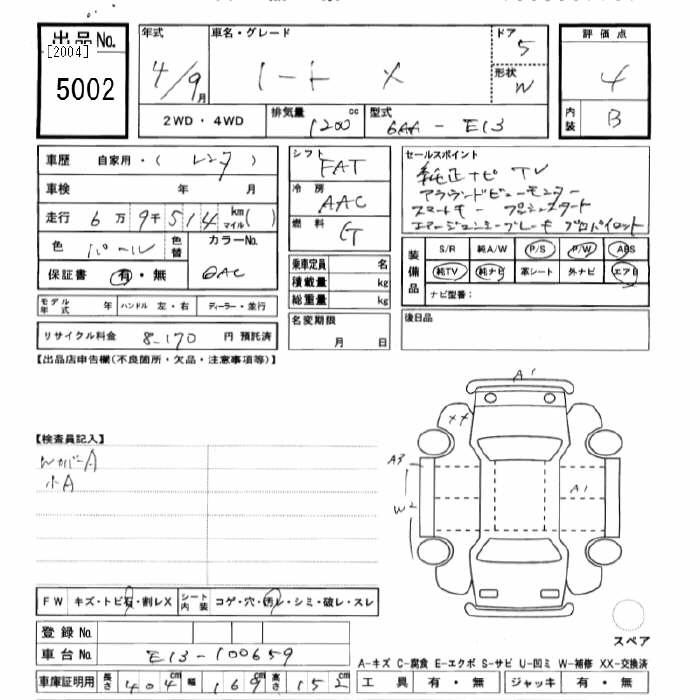 出品No.
[2004]
5002
年式
4/9月
車名・グレード
ノート X
ドア
5
形状
W
評価点
4
内装
B
2WD・4WD
排気量
1200 cc
型式
6AA-E13
車歴 自家用・( レンタ )
車検 年 月
走行 6万9千514 km マイル( )
色 パール 色替
カラーNo.
QAC
保証書 有・無
モデル年式 年 ハンドル 左・右 ディーラー・並行
リサイクル料金 8,170 円 預託済
シフト FAT
冷房 AAC
燃料 G
乗車定員 名
積載量 kg
総重量 kg
名変期限
月 日
セールスポイント
純正ナビ TV
アラウンドビューモニター
スマートキー プッシュスタート
エマージェンシーブレーキ プロパイロット
装備品
S/R 純A/W P/S P/W ABS
純TV 純ナビ 革シート 外ナビ エアB
ナビ型番:
後日品
【出品店申告欄(不良箇所・欠品・注意事項等)】
【検査員記入】
Wカバー A
小A
A1
XX
A3
W2
A1
FW キズ・トビ石・割レX シート内装 コゲ・穴・汚レ・シミ・破レ・スレ
登録No.
車台No. E13-100659
車庫証明用 長さ 404cm 幅 169cm 高さ 152cm
スペア
A-キズ C-腐食 E-エクボ S-サビ U-凹ミ W-補修 XX-交換済
工具 有・無 ジャッキ 有・無